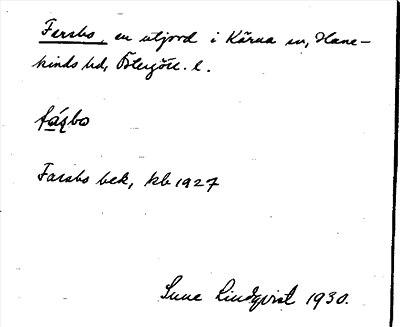 Fersbo, en utjord i Kärna sn, Hane-
kinds hd, Östergötl. l.
fá̱ʂbo
Farsbo bek, kb 1927
Sune Lindqvist 1930.